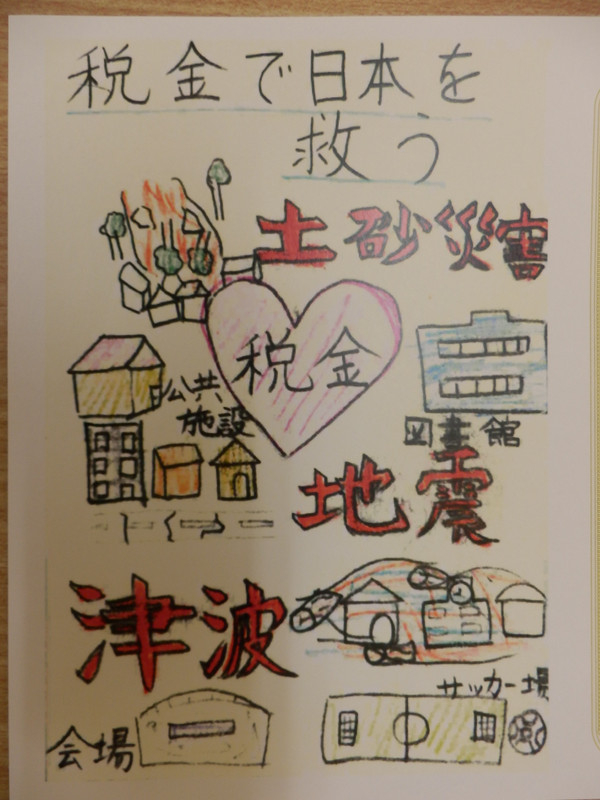 税金で日本を
救う
土砂災害
税金
公共
施設
図書館
地震
津波
サッカー場
会場